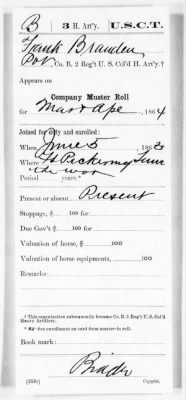 B 3 H. Art'y. U.S.C.T.
Frank Branden
Pvt, Co. B, 2 Reg't U. S. Col'd H. Art'y.†
Appears on
Company Muster Roll
for Mar & Apr, 1864
Joined for duty and enrolled:
When June 5, 1863
Where Ft Pickering Tenn
Period the war years.*
Present or absent Present
Stoppage, $ 100 for
Due Gov't $ 100 for
Valuation of horse, $ 100
Valuation of horse equipments, $ 100
Remarks:
† This organization subsequently became Co. B, 3 Reg't U. S. Col'd
Heavy Artillery.
* See enrollment on card from muster-in roll.
Book mark:
(358c) Copyist.